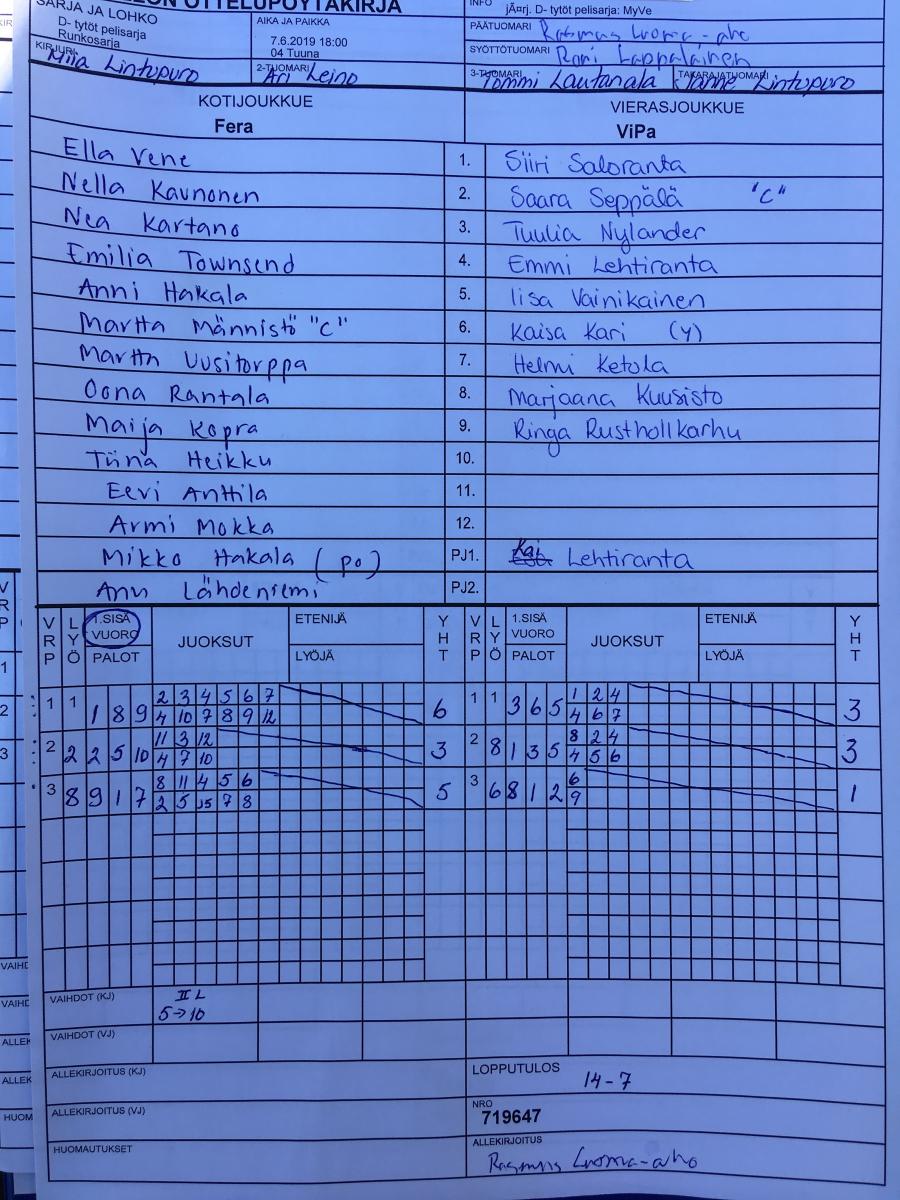 OTTELUPÖYTÄKIRJA
SARJA JA LOHKO
D- tytöt pelisarja
Runkosarja
AIKA JA PAIKKA
7.6.2019 18:00
04 Tuuna
INFO
jÃ¤rj. D- tytöt pelisarja: MyVe
PÄÄTUOMARI Rasmus Luoma-aho
SYÖTTÖTUOMARI Roni Lappalainen
KIRJURI Miia Lintupuro
2-TUOMARI Ari Leino
3-TUOMARI Tommi Lautanala
TAKARAJATUOMARI Janne Lintupuro
KOTIJOUKKUE
Fera
VIERASJOUKKUE
ViPa
Ella Vene 1. Siiri Saloranta
Nella Kaunonen 2. Saara Seppälä "C"
Nea Kartano 3. Tuulia Nylander
Emilia Townsend 4. Emmi Lehtiranta
Anni Hakala 5. Iisa Vainikainen
Martta Männistö "C" 6. Kaisa Kari (Y)
Martta Uusitorppa 7. Helmi Ketola
Oona Rantala 8. Marjaana Kuusisto
Maija Kopra 9. Ringa Rusthollkarhu
Tiina Heikku 10.
Eevi Anttila 11.
Armi Mokka 12.
Mikko Hakala (po) PJ1. Kai Lehtiranta
Anu Lähdeniemi PJ2.
VRP LYÖ 1.SISÄ VUORO PALOT JUOKSUT ETENIJÄ LYÖJÄ YHT VRP LYÖ 1.SISÄ VUORO PALOT JUOKSUT ETENIJÄ LYÖJÄ YHT
1 1 1 8 9 2 3 4 5 6 7 6 1 1 3 6 5 1 2 4 3
4 10 7 8 9 12 4 6 7
2 2 2 5 10 11 3 12 3 2 8 1 3 5 8 2 4 3
4 7 10 4 5 6
3 8 9 1 7 8 11 4 5 6 5 3 6 8 1 2 6 1
2 5 15 7 8 9
VAIHDOT (KJ) II L
5→10
VAIHDOT (VJ)
ALLEKIRJOITUS (KJ)
LOPPUTULOS
14-7
ALLEKIRJOITUS (VJ)
NRO
719647
HUOMAUTUKSET
ALLEKIRJOITUS
Rasmus Luoma-aho